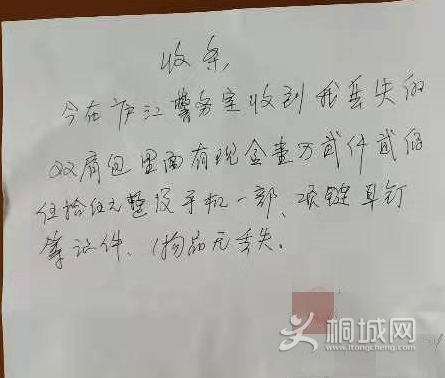 收条
今在庐江警务室收到我丢失的
双肩包里面有现金壹万贰仟贰佰
伍拾伍元整及手机一部、项链耳钉
等证件、(物品无丢失。
桐城网
www.itongcheng.com